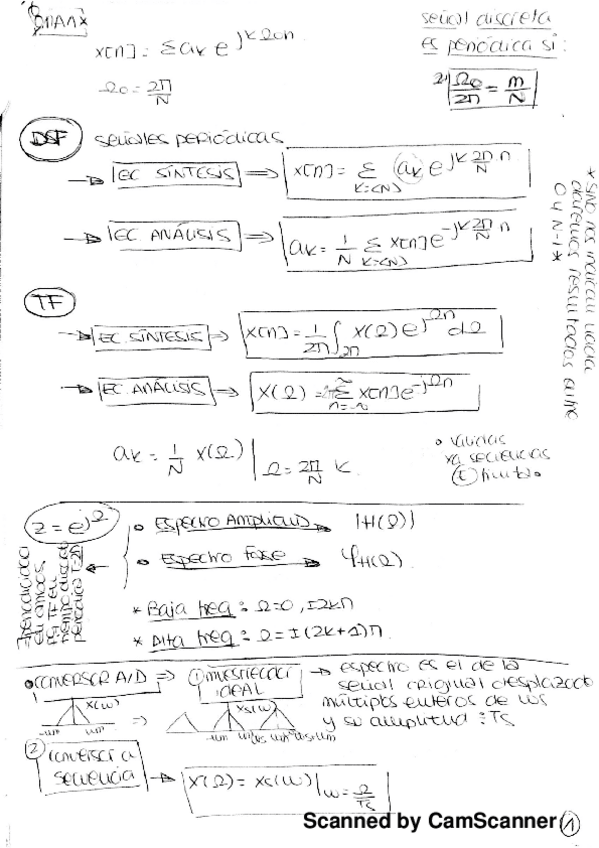 x[n] = Σ ak e^jkΩ0n
Ω0 = 2π/N
señal discreta
es periódica si:
Ω0/2π = m/N
DSF señales periódicas
EC SÍNTESIS ⇒ x[n] = Σ k=<N> ak e^jk 2π/N n
EC ANÁLISIS ⇒ ak = 1/N Σ k=<N> x[n] e^-jk 2π/N n
* si no nos indican nada
daremos resultados entre
0 y N-1 *
TF
EC SÍNTESIS ⇒ x[n] = 1/2π ∫2π X(Ω) e^jΩn dΩ
EC ANÁLISIS ⇒ X(Ω) = Σ n=-∞ ∞ x[n] e^-jΩn
ak = 1/N X(Ω) | Ω = 2π/N k
válidas
xa secuencias
finitas
z = e^jΩ
ESPECTRO AMPLITUD → |H(Ω)|
ESPECTRO FASE → φH(Ω)
* Baja freq: Ω = 0, ±2kπ
* Alta freq: Ω = ±(2k+1)π
CONVERSOR A/D ⇒ 1 MUESTREADOR IDEAL → espectro es el de la
señal original desplazado
múltiplos enteros de ws
y su amplitud : Ts
X(w)
Xs(w)
2 conversor a
secuencia → X(Ω) = Xs(w) | w = Ω/Ts
Scanned by CamScanner
1